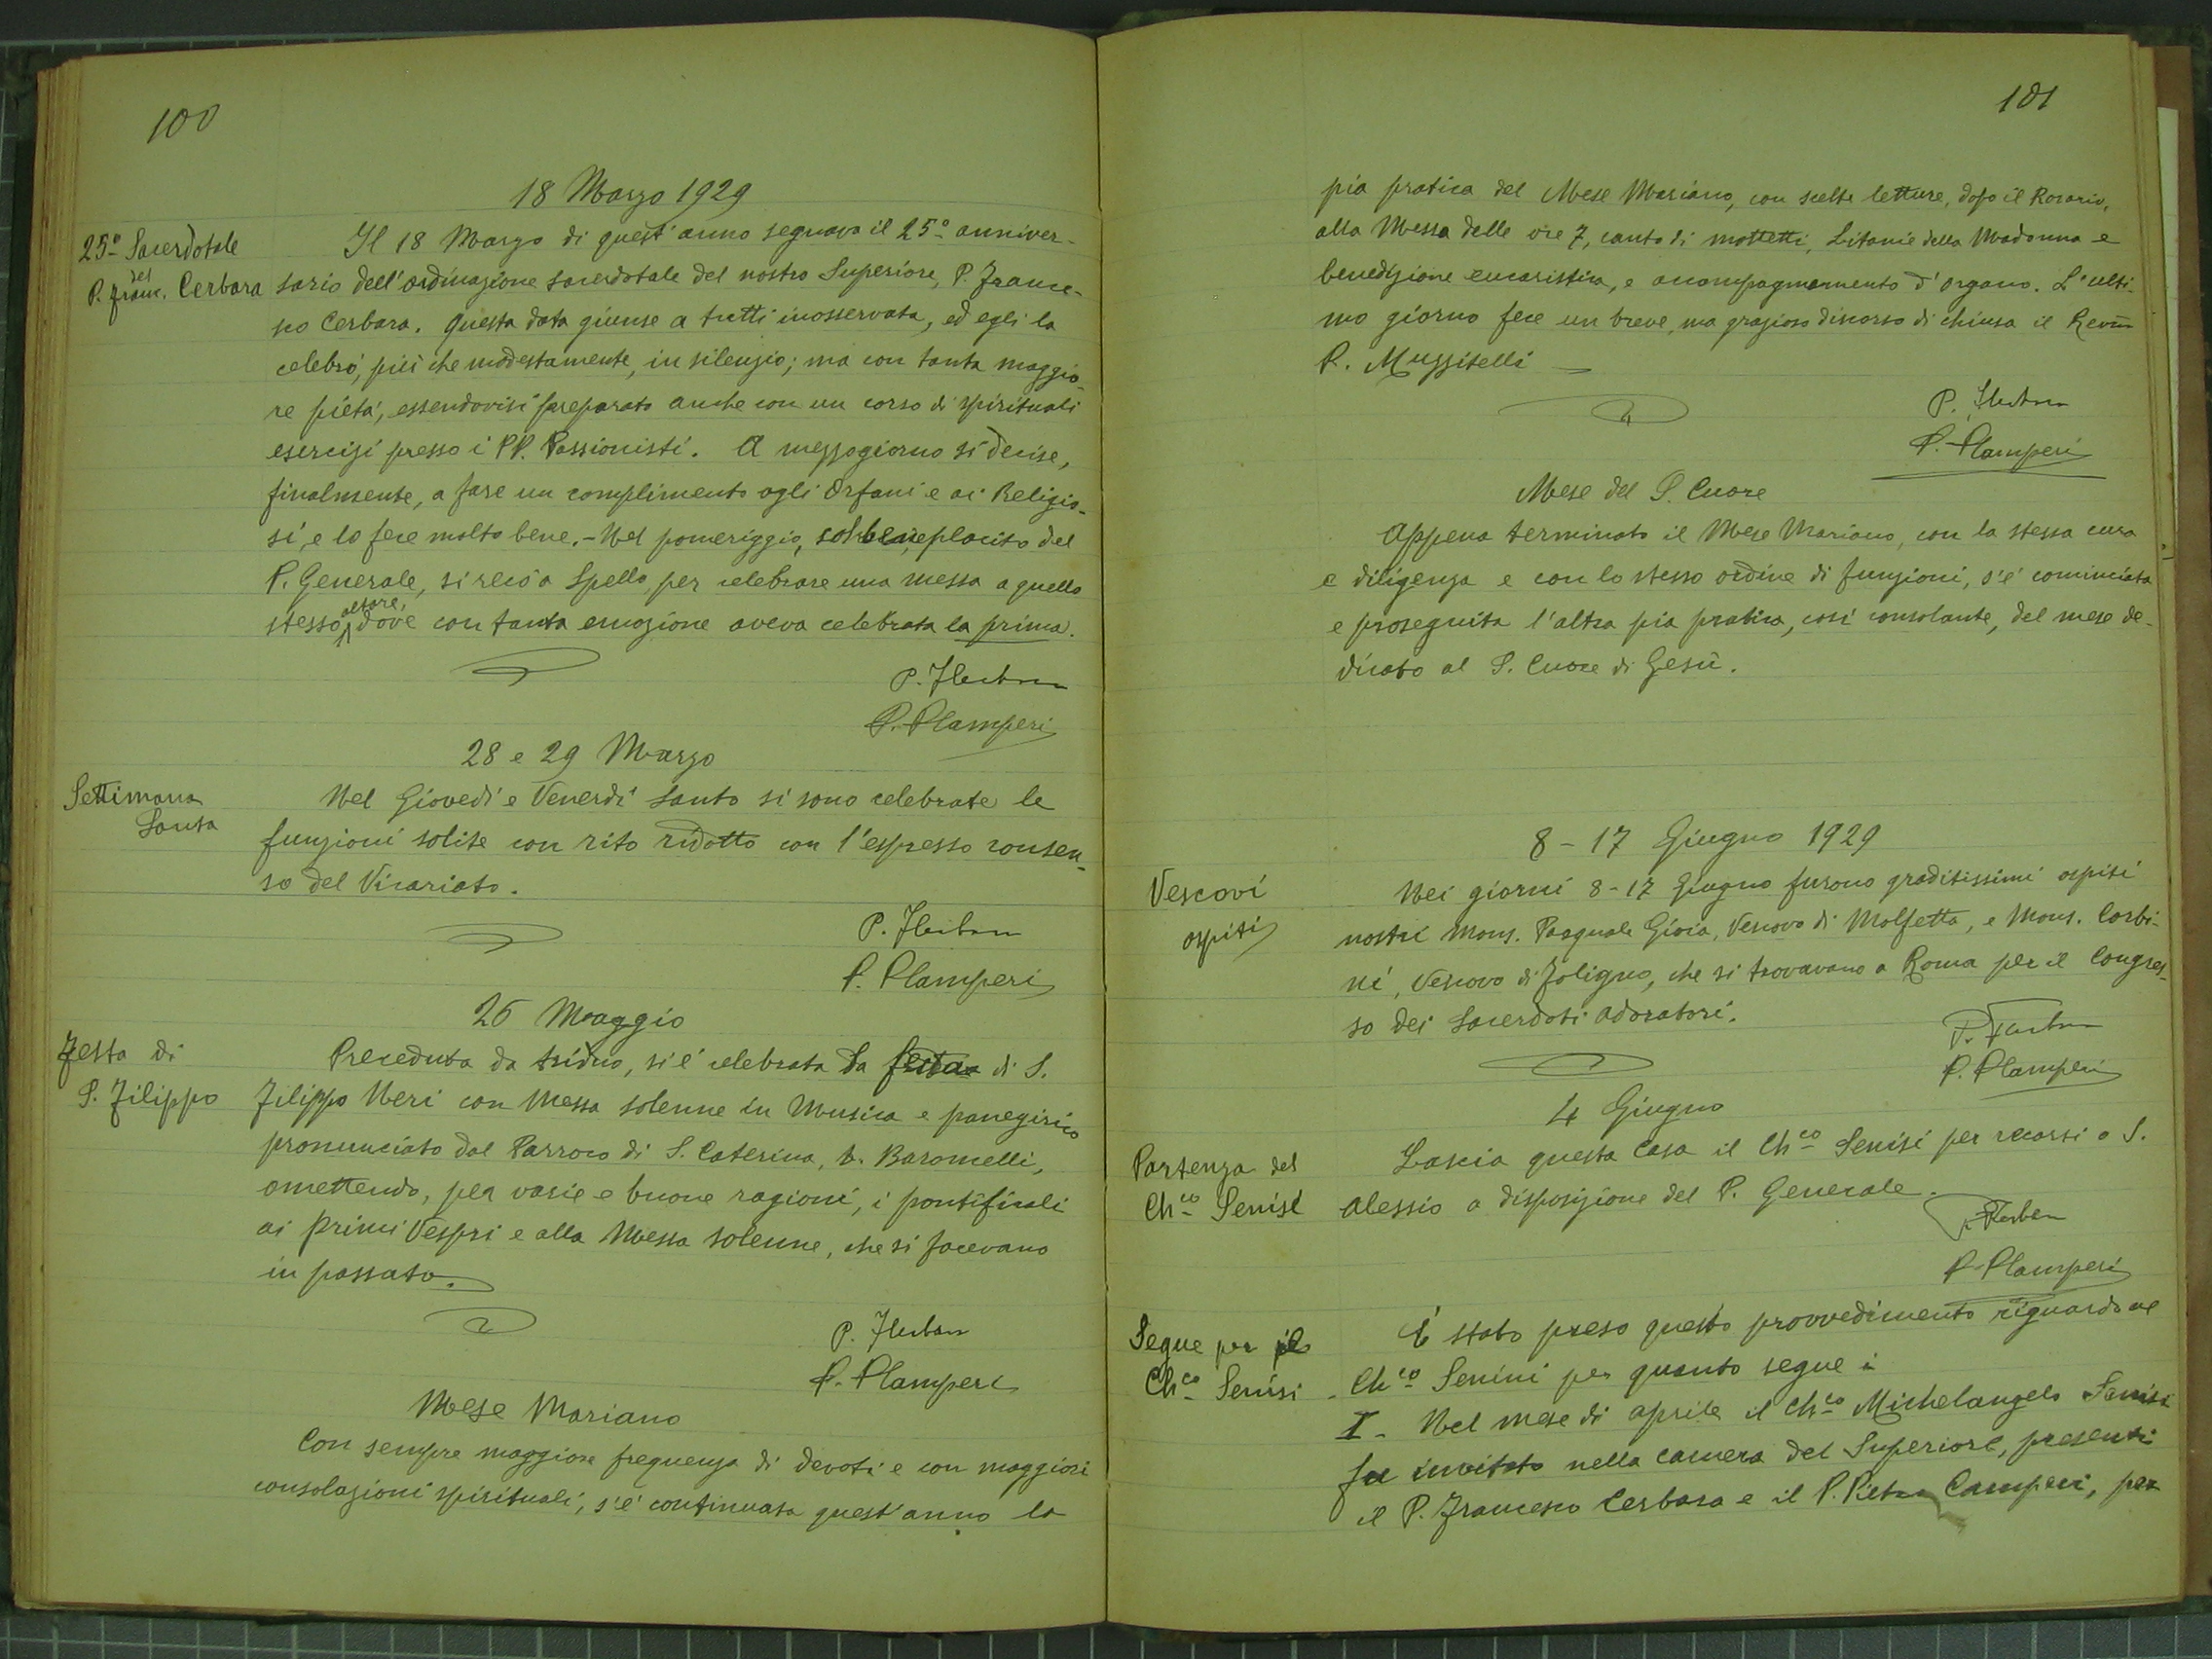 100
18 Marzo 1929
25º Sacerdotale
del
P. Franc. Cerbara
Il 18 Marzo di quest'anno segnava il 25º anniver-
sario dell'ordinazione sacerdotale del nostro Superiore, P. France-
sco Cerbara. Questa data giunse a tutti inosservata, ed egli la
celebrò, più che modestamente, in silenzio; ma con tanta maggio-
re pietà, essendovisi preparato anche con un corso di spirituali
esercizi presso i PP. Passionisti. A mezzogiorno si decise,
finalmente, a fare un complimento agli Orfani e ai Religio-
si, e lo fece molto bene. - Nel pomeriggio, col beneplacito del
P. Generale, si recò a Spello, per celebrare una messa a quello
stesso altare, dove con tanta emozione aveva celebrata la prima.
P.
P. P Camperi
28 e 29 Marzo
Settimana
Santa
Nel Giovedì e Venerdì Santo si sono celebrate le
funzioni solite con rito ridotto con l'espresso consen-
so del Vicariato.
P.
P. P Camperi
26 Maggio
Festa di
S. Filippo
Preceduta da triduo, si è celebrata la festa di S.
Filippo Neri con Messa solenne in Musica e panegirico
pronunciato dal Parroco di S. Caterina, Baroncelli,
omettendo, per varie e buone ragioni, i pontificali
ai primi Vespri e alla Messa solenne, che si facevano
in passato.
P.
P. P Camperi
Mese Mariano
Con sempre maggiore frequenza di devoti e con maggiori
consolazioni spirituali, s'è continuata quest'anno la
101
pia pratica del Mese Mariano, con scelte letture, dopo il Rosario,
alla Messa delle ore 7, canto di mottetti, Litanie della Madonna e
benedizione eucaristica, e accompagnamento d'organo. L'ulti-
mo giorno fece un breve, ma grazioso discorso di chiusa il Revm
P. Muzzitelli
P.
P. P Camperi
Mese del S. Cuore
Appena terminato il Mese Mariano, con la stessa cura
e diligenza e con lo stesso ordine di funzioni, s'è cominciata
e proseguita l'altra pia pratica, così consolante, del mese de-
dicato al S. Cuore di Gesù.
8 - 17 Giugno 1929
Vescovi
ospiti
Nei giorni 8-17 Giugno furono graditissimi ospiti
nostri Mons. Pasquale Gioia, Vescovo di Molfetta, e Mons. Corbi-
ni, Vescovo di Foligno, che si trovavano a Roma per il Congres-
so dei Sacerdoti adoratori.
P.
P. P Camperi
4 Giugno
Partenza del
Chco Senisi
Lascia questa Casa il Chco Senisi per recarsi a S.
Alessio a disposizione del P. Generale.
P. P Camperi
Segue per il
Chco Senisi
È stato preso questo provvedimento riguardo al
Chco Senini per quanto segue:
I - Nel mese di aprile il Chco Michelangelo Senisi
fu invitato nella camera del Superiore, presenti
il P. Francesco Cerbara e il P. Pietro Camperi, per